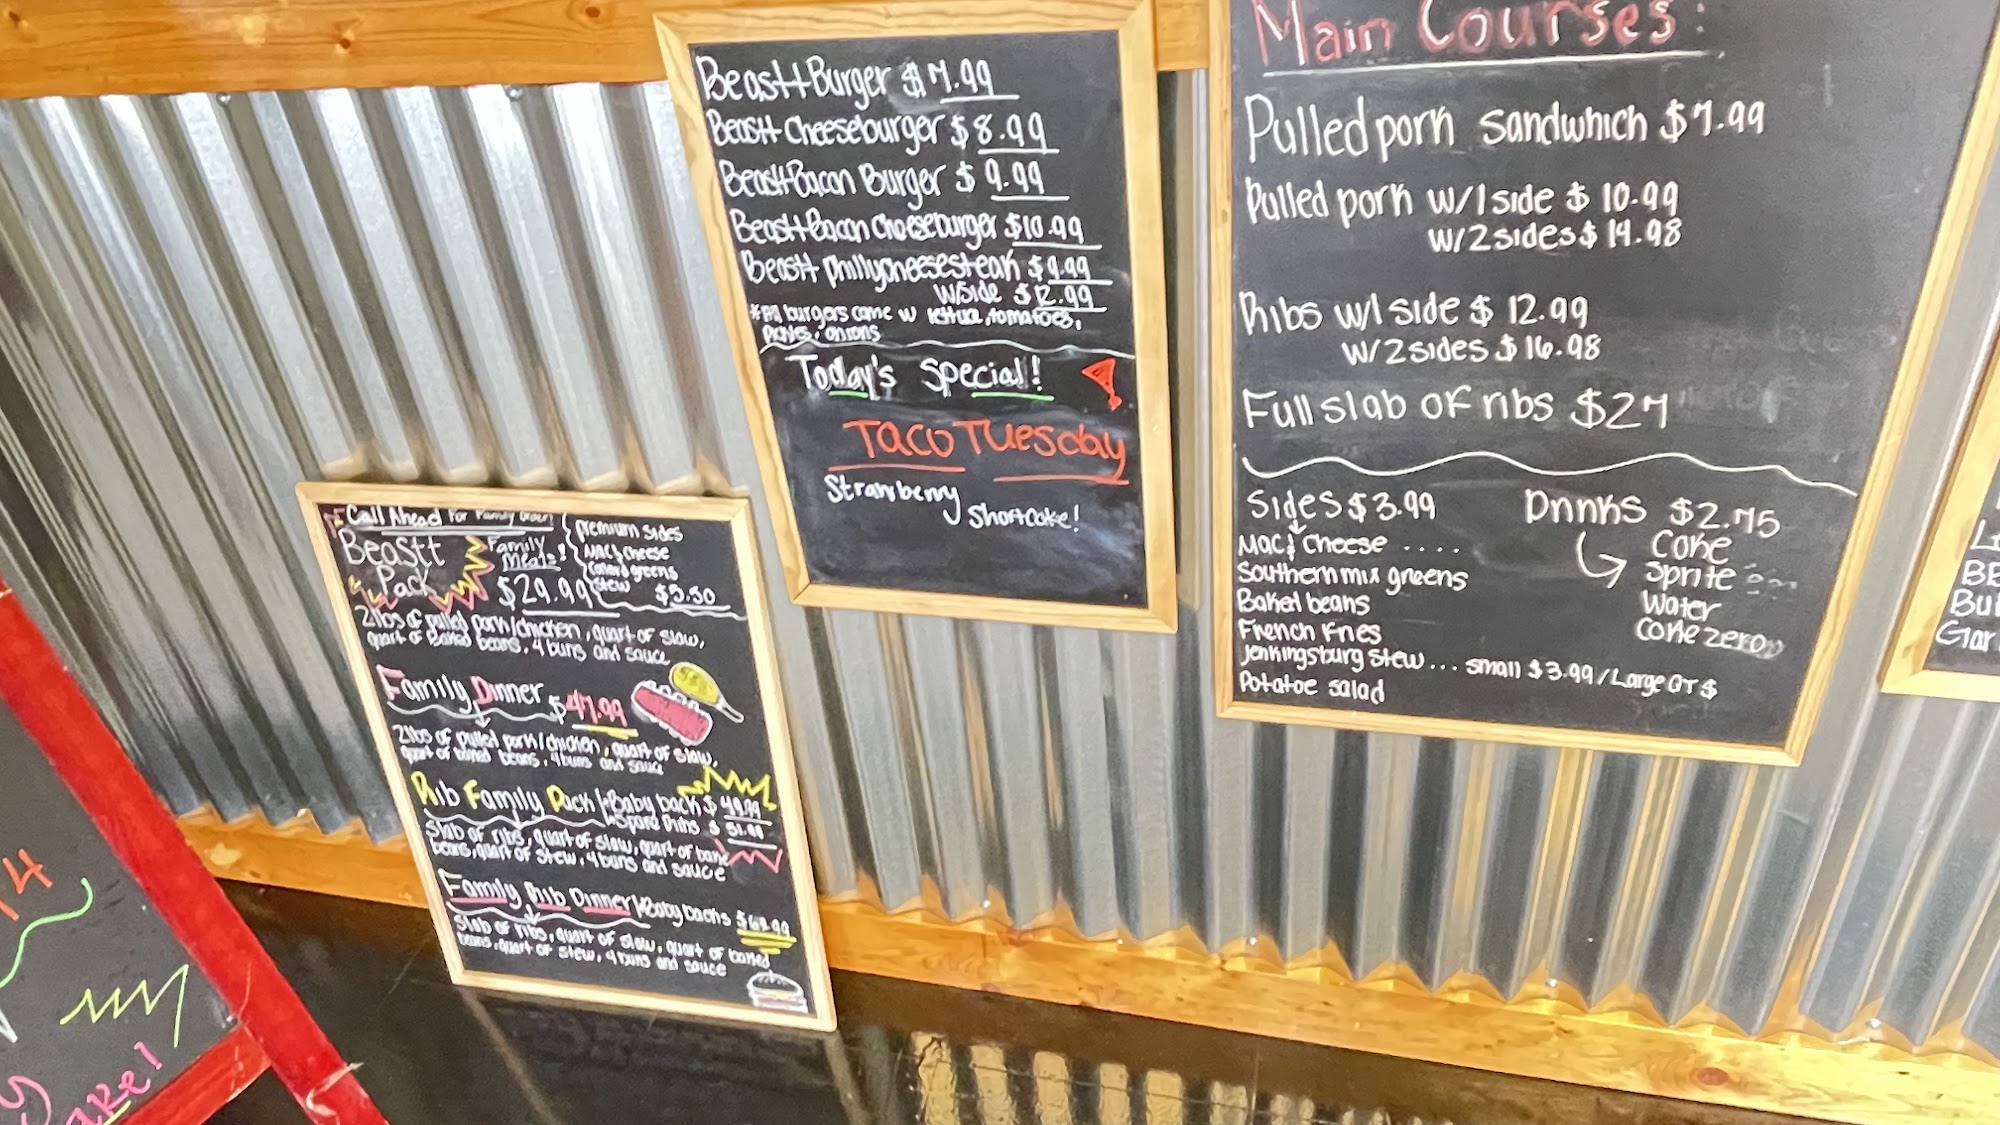 Call Ahead For Family Orders
Beastt
Pack
Family
Meals!
$29.99
premium sides
Mac & Cheese
Stew
$5.50
2 lbs of pulled pork/chicken, quart of slaw,
quart of Baked beans, 4 buns and sauce
Family Dinner $47.99
2 lbs of pulled pork/chicken, quart of slaw,
quart of baked beans, 4 buns and sauce
Rib Family Pack Baby back $49.99
Spare Ribs $
Slab of ribs, quart of slaw, quart of bake
beans, quart of stew, 4 buns and sauce
Family Rib Dinner Baby backs
Slab of ribs, quart of slaw, quart of baked
beans, quart of stew, 4 buns and sauce
Beastt Burger $7.99
Beastt Cheeseburger $8.99
Beastt Bacon Burger $9.99
Beastt Bacon Cheeseburger $10.99
Beastt phillycheesesteak $9.99
w/side $12.99
*All burgers come w lettuce, tomatoes,
pickles, onions
Today's Special!
Taco Tuesday
Strawberry
Shortcake!
Main Courses:
Pulled pork Sandwhich $7.99
Pulled pork w/1 side $10.99
w/2 sides $14.98
Ribs w/1 side $12.99
w/2 sides $16.98
Full slab of ribs $27
Sides $3.99
Mac & Cheese ....
Southern mix greens
Baked beans
French Fries
Jenkingsburg Stew... small $3.99/Large QT $
Potatoe salad
Drinks $2.75
Coke
Sprite
Water
Coke zero
BB
Gar
14
ake!